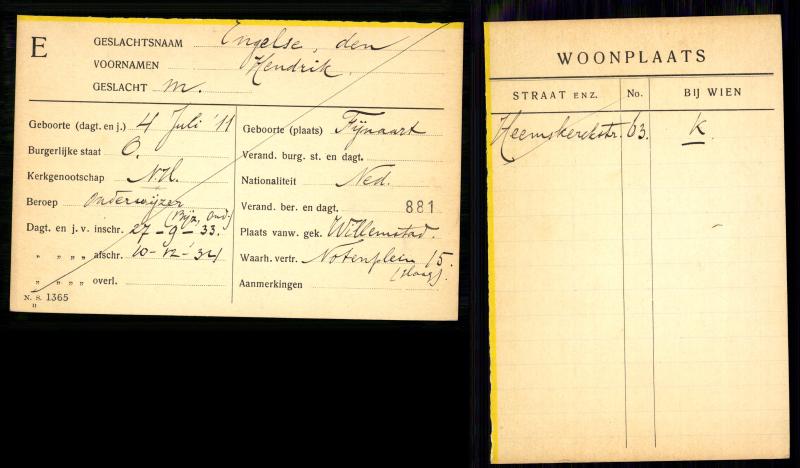 E
GESLACHTSNAAM Engelse, den
VOORNAMEN Hendrik.
GESLACHT m.
Geboorte (dagt. en j.) 4 Juli '11
Burgerlijke staat O.
Kerkgenootschap N.H.
Beroep Onderwijzer
(Bijz. Ond.)
Dagt. en j. v. inschr. 27-9-33.
„ „ „ „ afschr. 10-12-'34
„ „ „ „ overl.
N. S. 1365
Geboorte (plaats) Fijnaart
Verand. burg. st. en dagt.
Nationaliteit Ned.
Verand. ber. en dagt. 881
Plaats vanw. gek. Willemstad.
Waarh. vertr. Notenplein 15.
(Haag).
Aanmerkingen
WOONPLAATS
STRAAT ENZ. No. BIJ WIEN
Heemskerckstr. 63. K.